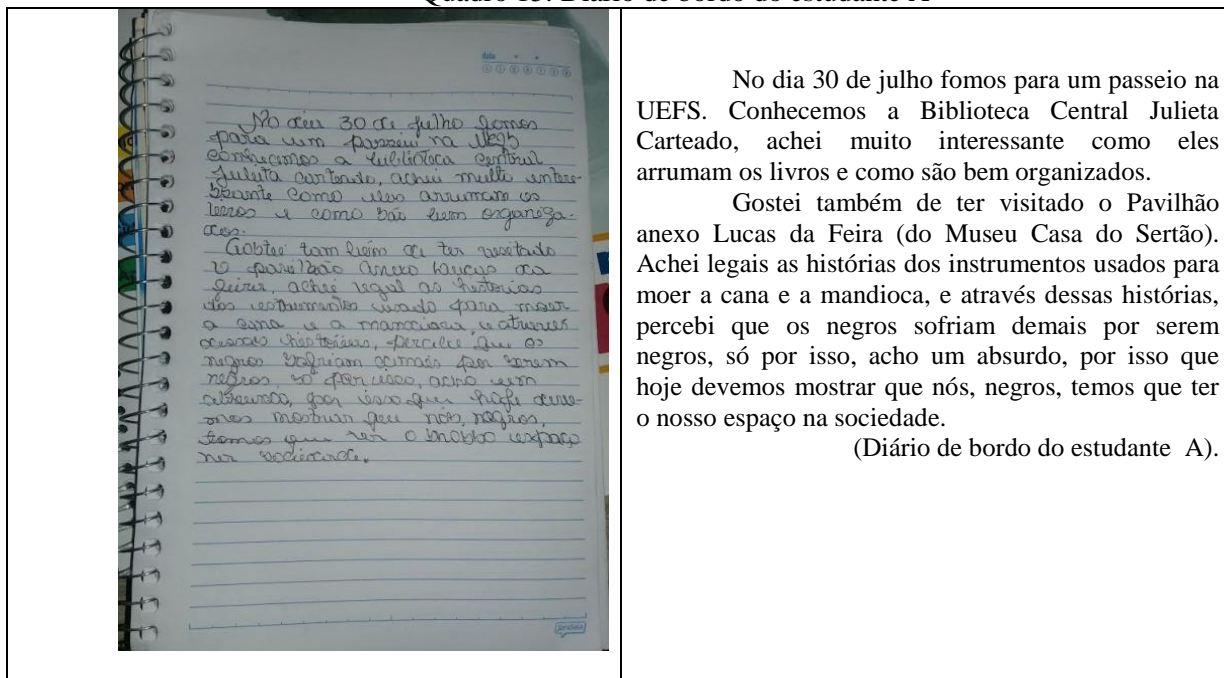 Quadro Diário de bordo do estudante A
data
No dia 30 de julho fomos
para um passeio na UEFS
conhecemos a biblioteca central
Julieta carteado, achei muito intere-
sante como eles arrumam os
livros e como são bem organiza-
dos.
Gostei tam bém de ter visitado
o pavilhão anexo Lucas da
feira, achei legal as historias
dos estrumentos usado para moer
a cana e a mandioca, e atraves
dessas historias, percebi que os
negros sofriam demais por serem
negros, só por isso, acho um
absurdo, por isso que hoje deve-
mos mostrar que nós, negros,
temos que ter o nosso espaço
na sociedade.
Jandaia
No dia 30 de julho fomos para um passeio na
UEFS. Conhecemos a Biblioteca Central Julieta
Carteado, achei muito interessante como eles
arrumam os livros e como são bem organizados.
Gostei também de ter visitado o Pavilhão
anexo Lucas da Feira (do Museu Casa do Sertão).
Achei legais as histórias dos instrumentos usados para
moer a cana e a mandioca, e através dessas histórias,
percebi que os negros sofriam demais por serem
negros, só por isso, acho um absurdo, por isso que
hoje devemos mostrar que nós, negros, temos que ter
o nosso espaço na sociedade.
(Diário de bordo do estudante A).